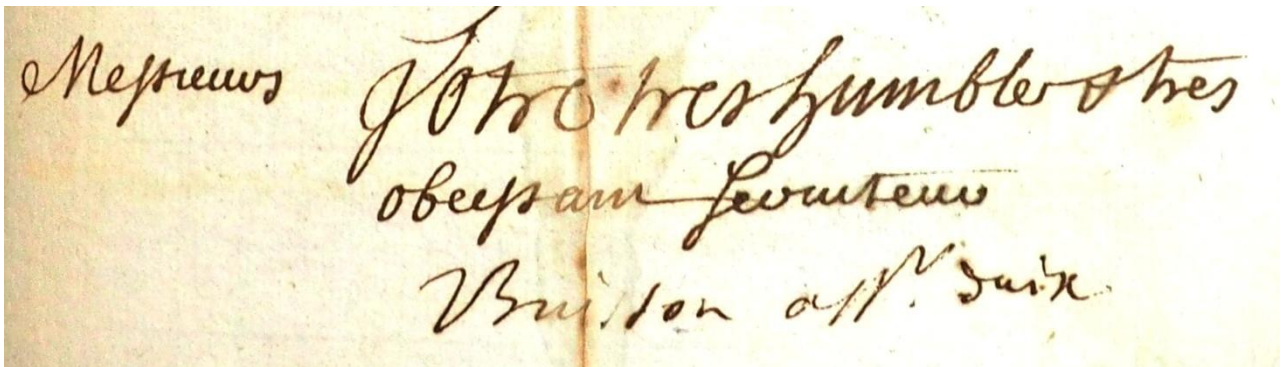 Messieurs Votre tres humble & tres
obeissant Serviteur
Buisson aff.r d'aix